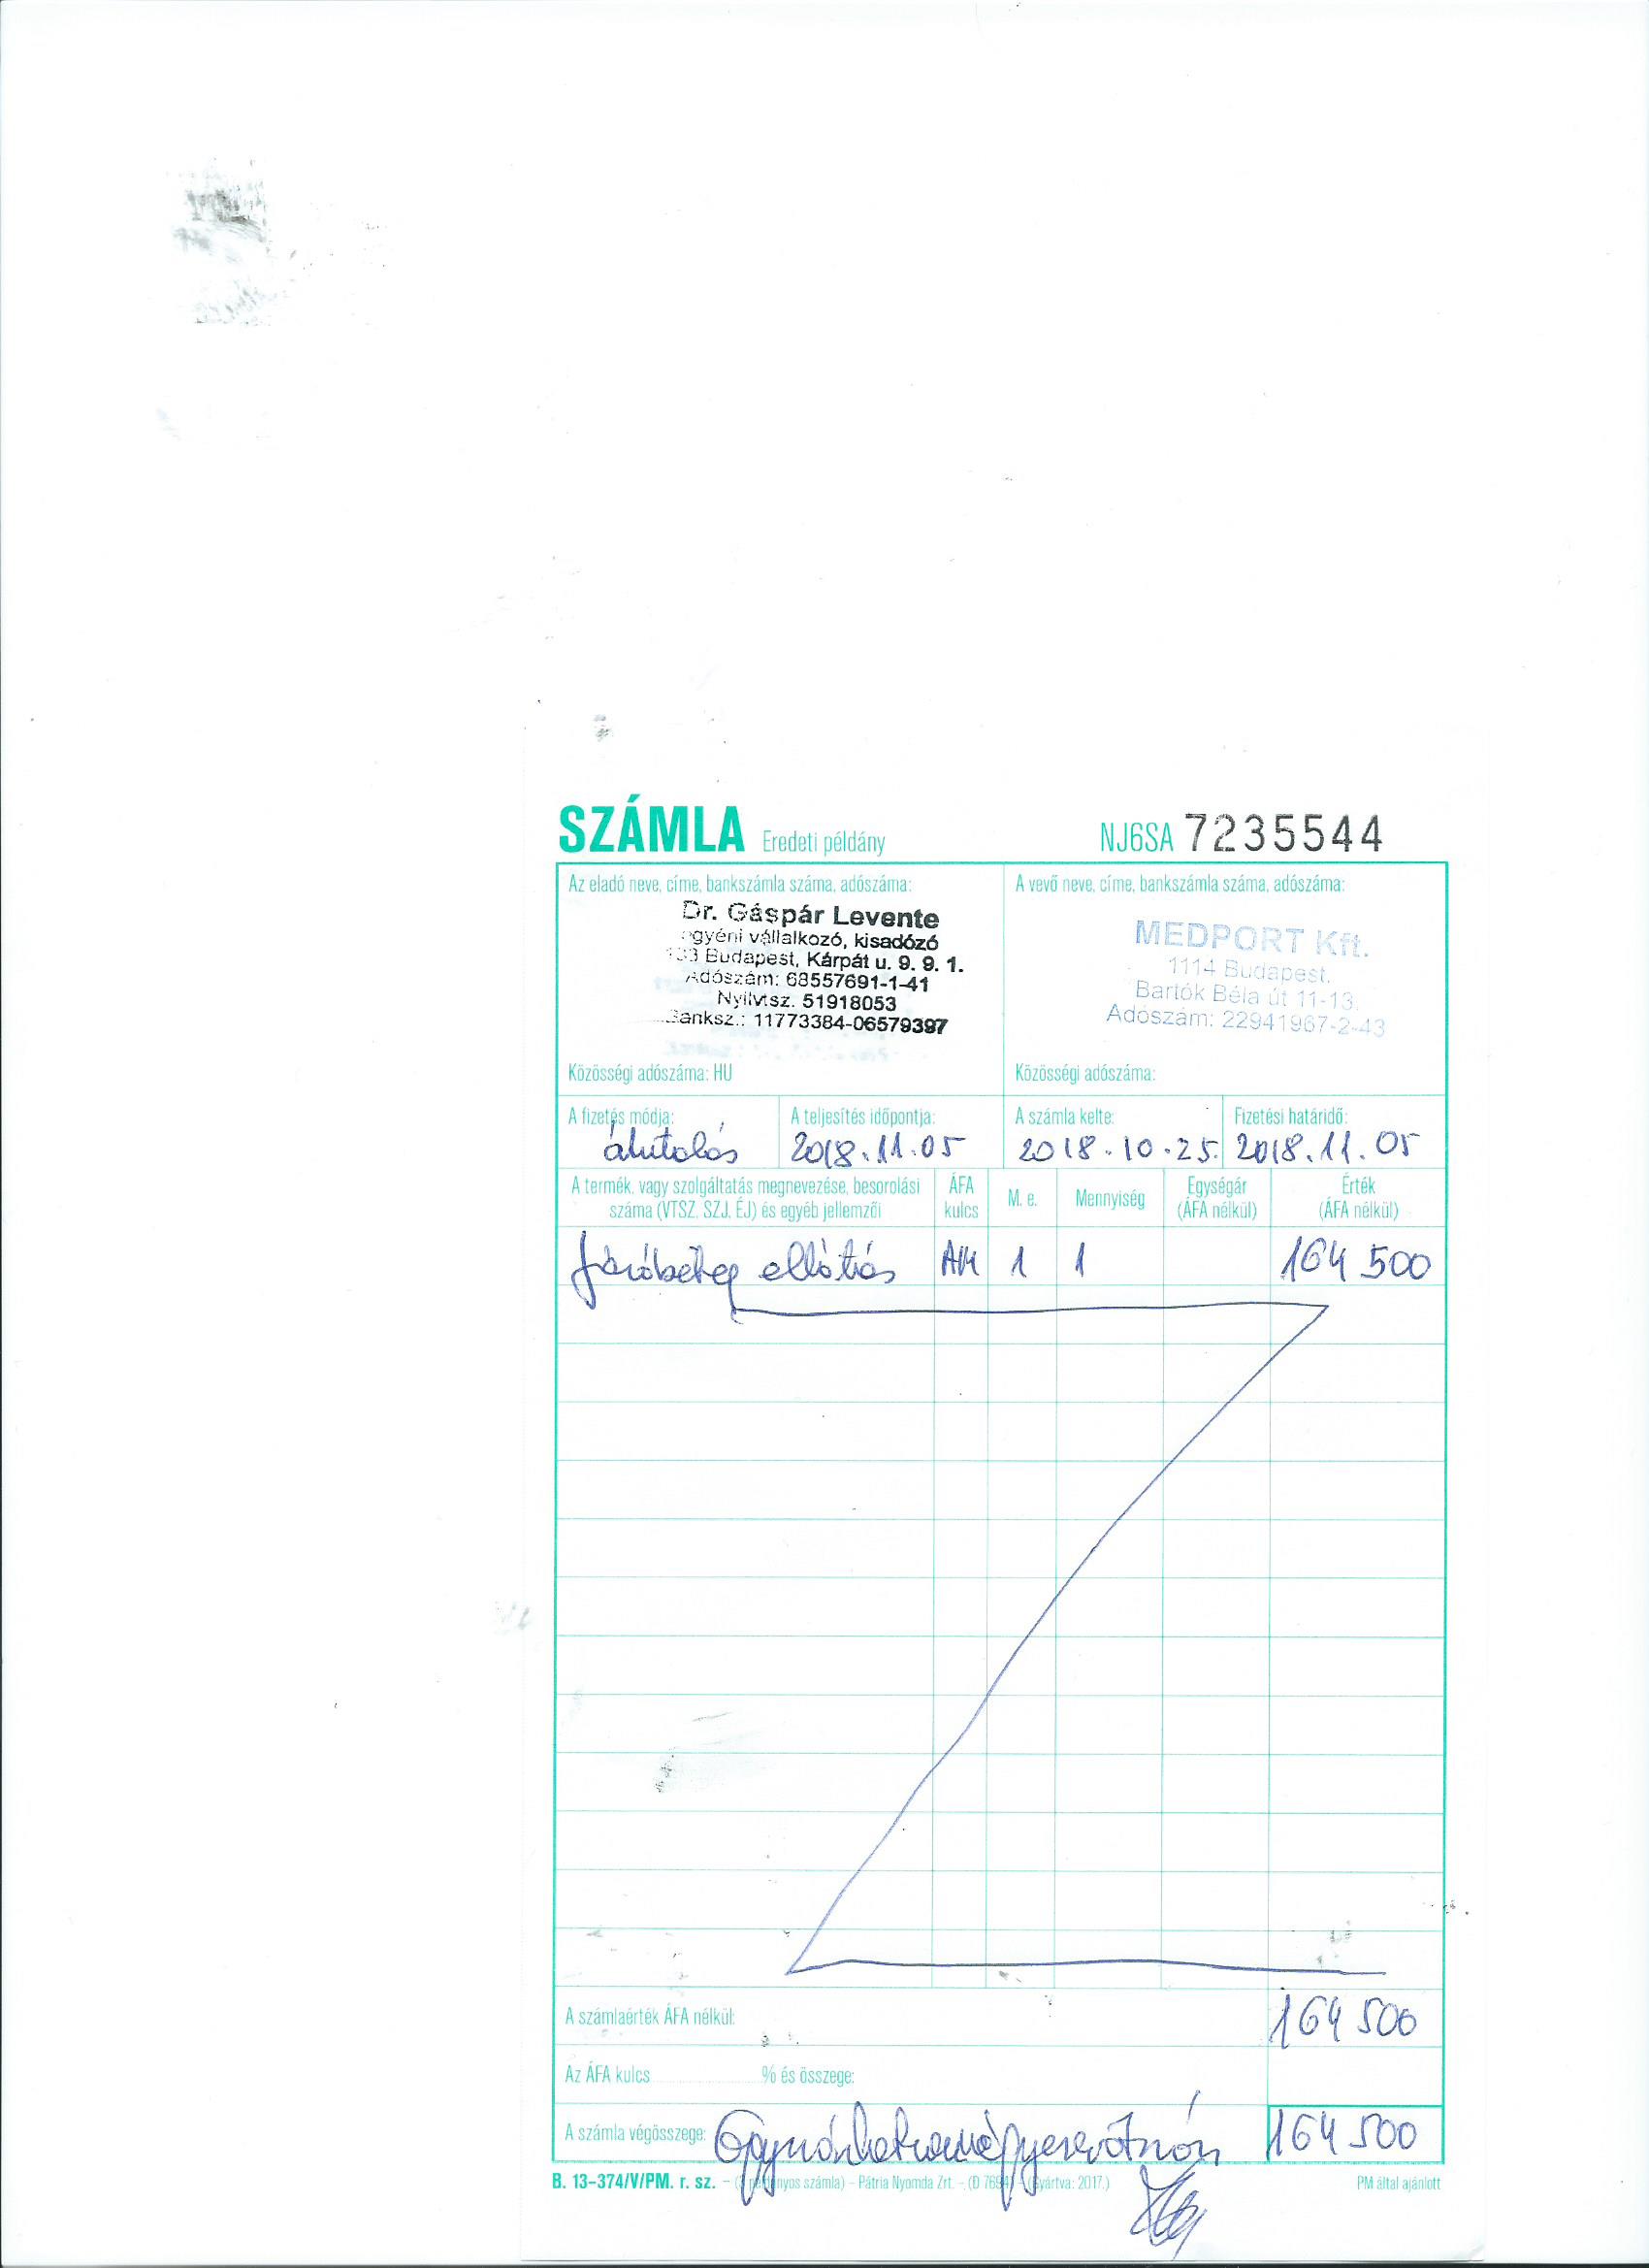 SZÁMLA Eredeti példány NJ6SA 7235544
Az eladó neve, címe, bankszámla száma, adószáma:
Dr. Gáspár Levente
egyéni vállalkozó, kisadózó
133 Budapest, Kárpát u. 9. 9. 1.
Adószám: 68557691-1-41
Nyilvtsz. 51918053
Banksz.: 11773384-06579397
Közösségi adószáma: HU
A vevő neve, címe, bankszámla száma, adószáma:
MEDPORT Kft.
1114 Budapest,
Bartók Béla út 11-13.
Adószám: 22941967-2-43
Közösségi adószáma:
A fizetés módja: A teljesítés időpontja: A számla kelte: Fizetési határidő:
átutalás 2018.11.05 2018.10.25. 2018.11.05
A termék, vagy szolgáltatás megnevezése, besorolási száma (VTSZ, SZJ, ÉJ) és egyéb jellemzői ÁFA kulcs M. e. Mennyiség Egységár (ÁFA nélkül) Érték (ÁFA nélkül)
járóbeteg ellátás AM 1 1 164 500
A számlaérték ÁFA nélkül: 164 500
Az ÁFA kulcs % és összege:
A számla végösszege: 164 500
B. 13-374/V/PM. r. sz. – nyos számla) – Pátria Nyomda Zrt. – (Gyártva: 2017.) PM által ajánlott